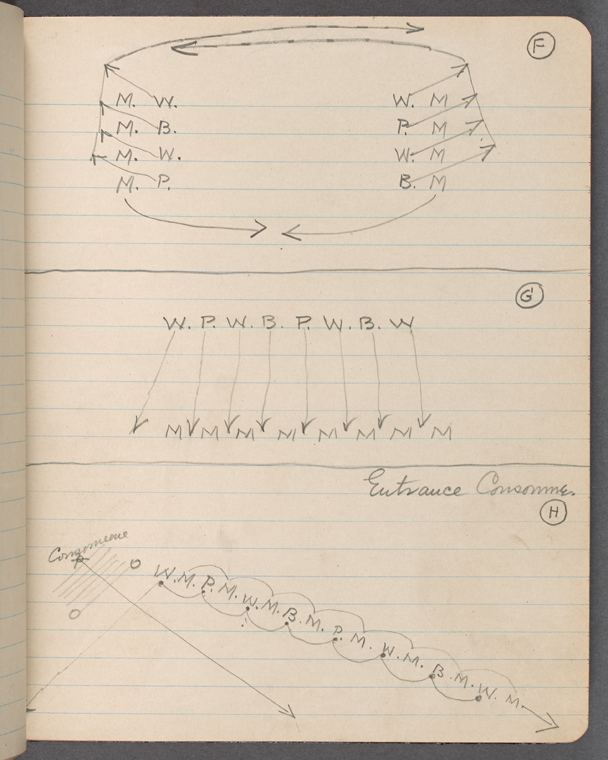 F
M. W. W. M
M. B. P. M
M. W. W. M
M. P. B. M
G
W. P. W. B. P. W. B. W
M M M M M M M M
Entrance Consomme.
H
Consomeme
W. M. P. M. W. M. B. M. P. M. W. M. B. M. W. M.